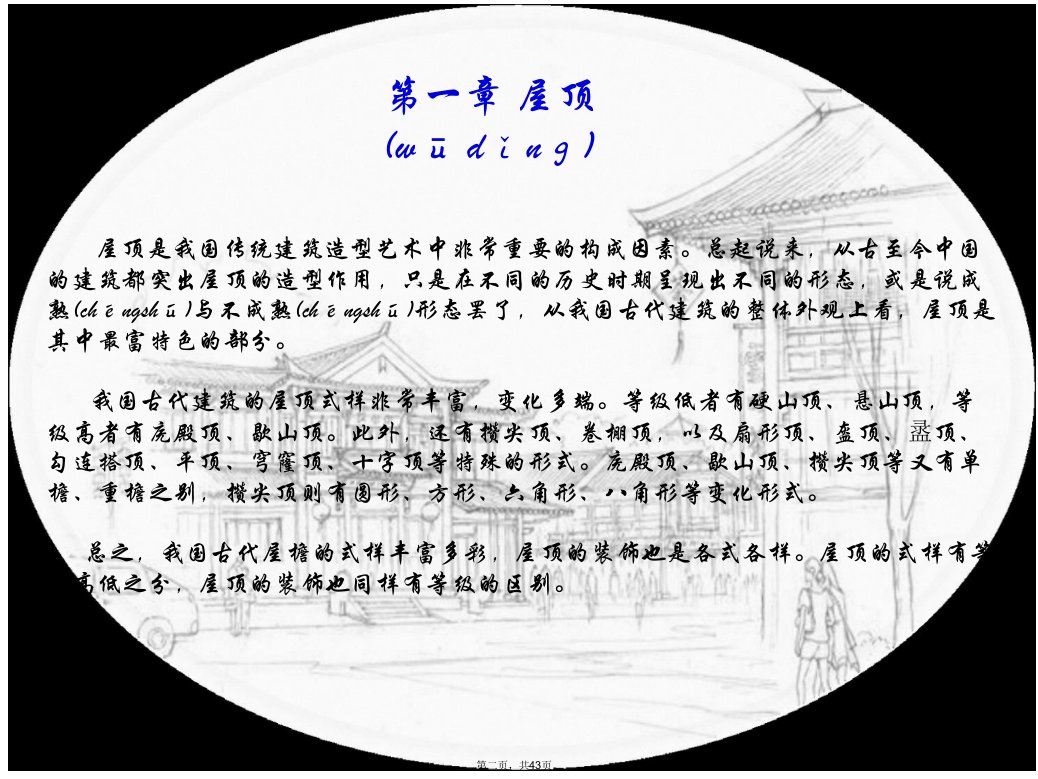 第一章 屋顶
(wūdǐng)
屋顶是我国传统建筑造型艺术中非常重要的构成因素。总起说来，从古至今中国
的建筑都突出屋顶的造型作用，只是在不同的历史时期呈现出不同的形态，或是说成
熟(chéngshú)与不成熟(chéngshú)形态罢了，从我国古代建筑的整体外观上看，屋顶是
其中最富特色的部分。
我国古代建筑的屋顶式样非常丰富，变化多端。等级低者有硬山顶、悬山顶，等
级高者有庑殿顶、歇山顶。此外，还有攒尖顶、卷棚顶，以及扇形顶、盔顶、盝顶、
勾连搭顶、平顶、穹窿顶、十字顶等特殊的形式。庑殿顶、歇山顶、攒尖顶等又有单
檐、重檐之别，攒尖顶则有圆形、方形、六角形、八角形等变化形式。
总之，我国古代屋檐的式样丰富多彩，屋顶的装饰也是各式各样。屋顶的式样有等
高低之分，屋顶的装饰也同样有等级的区别。
第二页，共43页